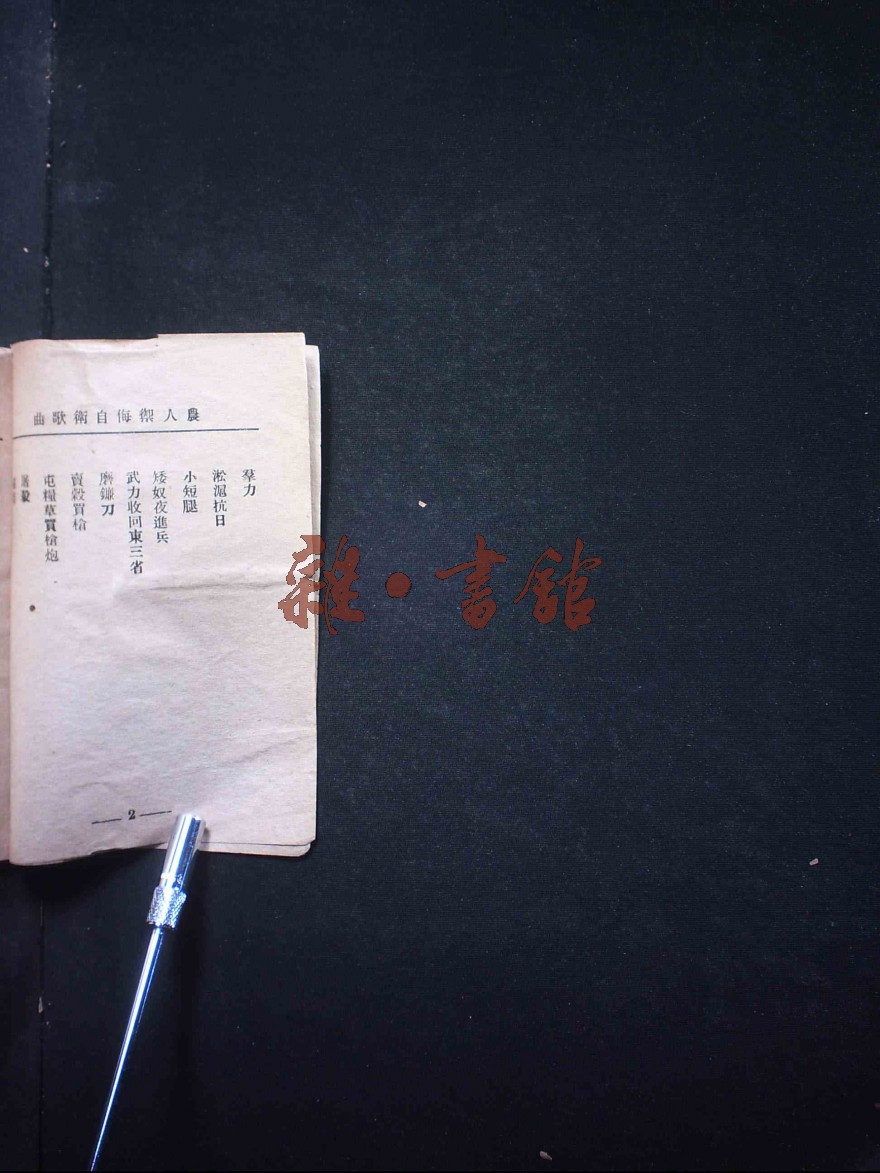 農人禦侮自衛歌曲
羣力
淞滬抗日
小短腿
矮奴夜進兵
武力收回東三省
磨鐮刀
賣穀買槍
屯糧草買槍炮
2
雜·書館